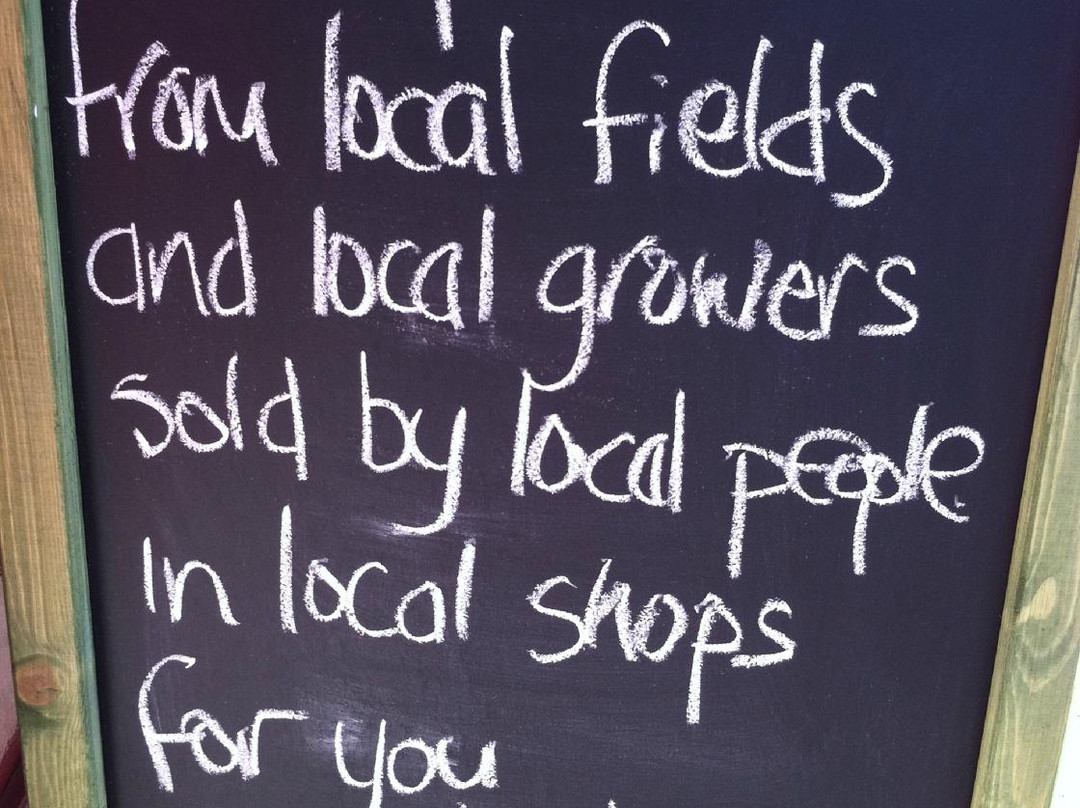 from local fields
and local growers
sold by local people
in local shops
for you